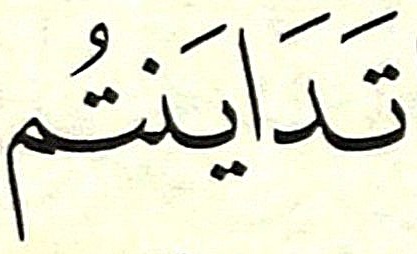 تَدَايَنتُم